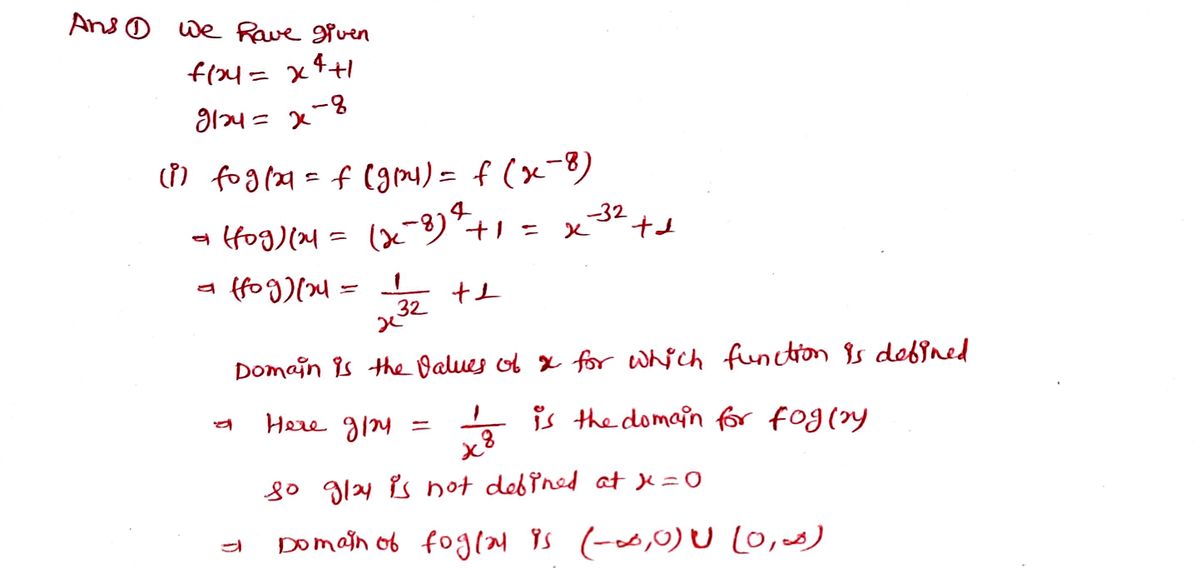 Ans ① We have given
f(x) = x⁴+1
g(x) = x⁻⁸
(i) fog(x) = f(g(x)) = f(x⁻⁸)
⇒ (fog)(x) = (x⁻⁸)⁴+1 = x⁻³²+1
⇒ (fog)(x) = 1/x³² +1
Domain is the values of x for which function is defined
⇒ Here g(x) = 1/x⁸ is the domain for fog(x)
so g(x) is not defined at x=0
⇒ Domain of fog(x) is (-∞,0) U (0,∞)